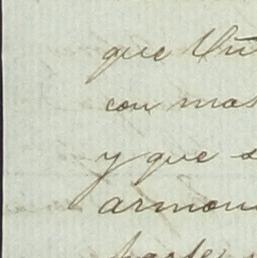 que
con mas
y que s
armon